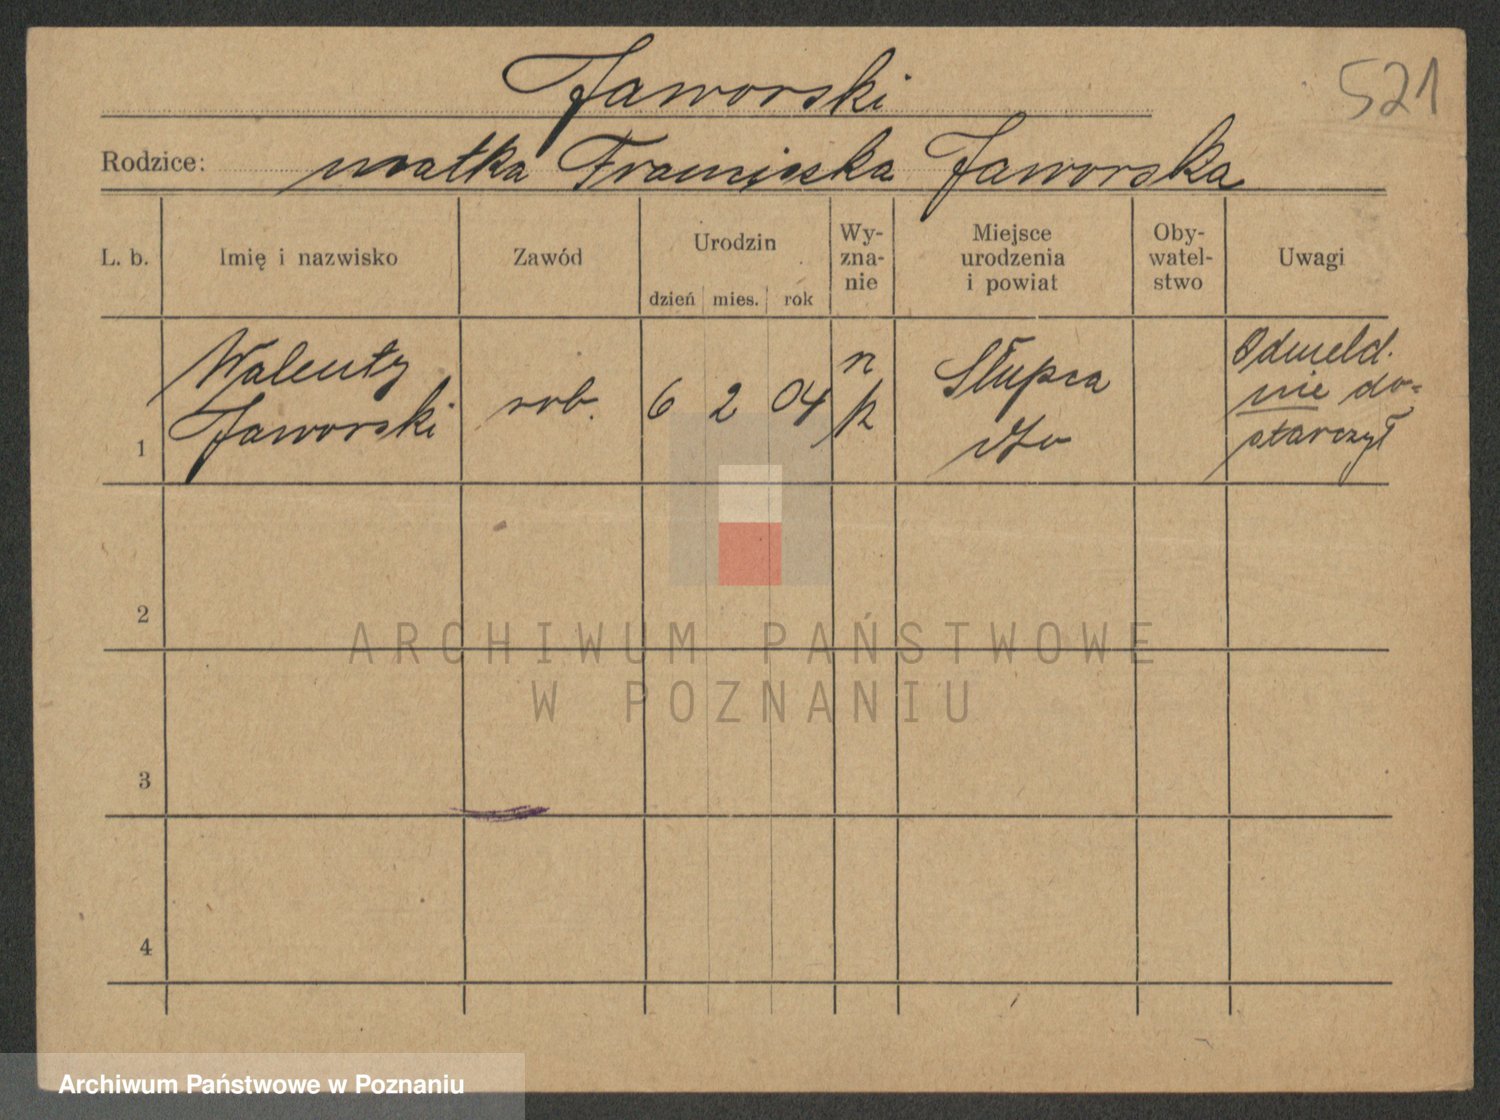 Jaworski
521
Rodzice: matka Franciszka Jaworska
L. b.
Imię i nazwisko
Zawód
Urodzin
dzień mies. rok
Wy-
zna-
nie
Miejsce
urodzenia
i powiat
Oby-
watel-
stwo
Uwagi
1
Walenty
Jaworski
rob.
6 2 04
r
k
Słupca
dto
Odmeld.
nie do=
starczył
2
3
4
ARCHIWUM PAŃSTWOWE
W POZNANIU
Archiwum Państwowe w Poznaniu